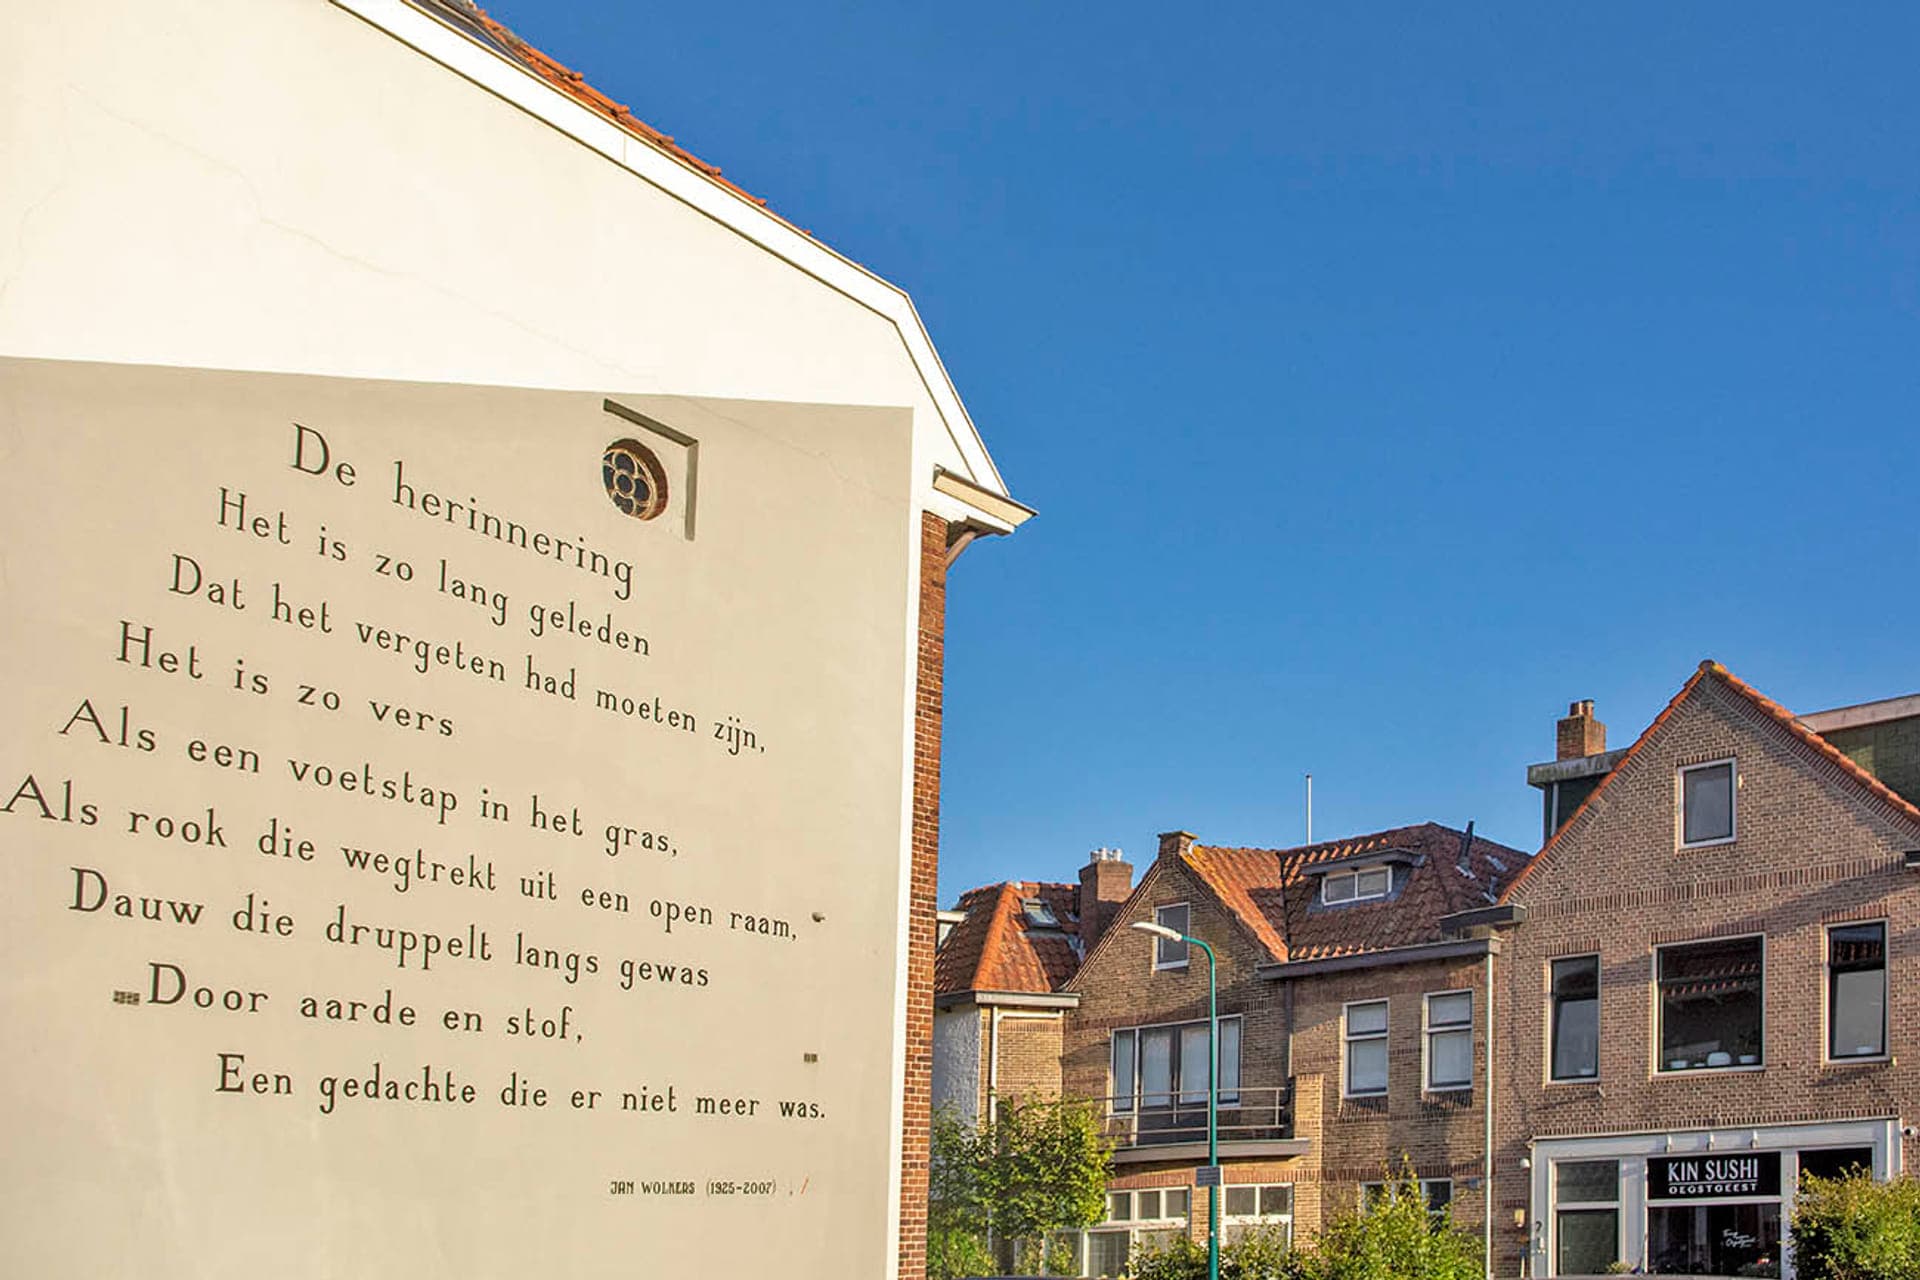 De herinnering
Het is zo lang geleden
Dat het vergeten had moeten zijn,
Het is zo vers
Als een voetstap in het gras,
Als rook die wegtrekt uit een open raam,
Dauw die druppelt langs gewas
Door aarde en stof,
Een gedachte die er niet meer was.
JAN WOLKERS (1925-2007)
KIN SUSHI
OEGSTGEEST